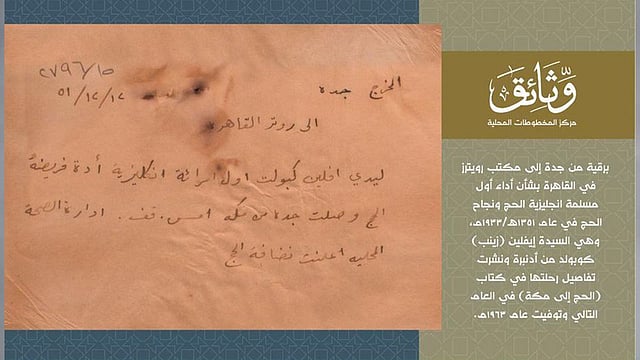 ٢٧٩٦/١٥
٥١/١٢/١٢
المخرج جدة
الى روتر القاهرة
ليدي افلين كبولت اول امرائة انكليزية أدة فريضة
الحج وصلت جدة من مكه امس . قف . ادارة الصحة
المحليه اعلنت نضافة الحج
وثائق
مركز المخطوطات المحلية
برقية من جدة إلى مكتب رويترز
في القاهرة بشأن أداء أول
مسلمة انجليزية الحج ونجاح
الحج في عام ١٣٥١هـ/١٩٣٣م،
وهي السيدة إيفلين (زينب)
كوبولد من أدنبرة ونشرت
تفاصيل رحلتها في كتاب
(الحج إلى مكة) في العام
التالي وتوفيت عام ١٩٦٣م.